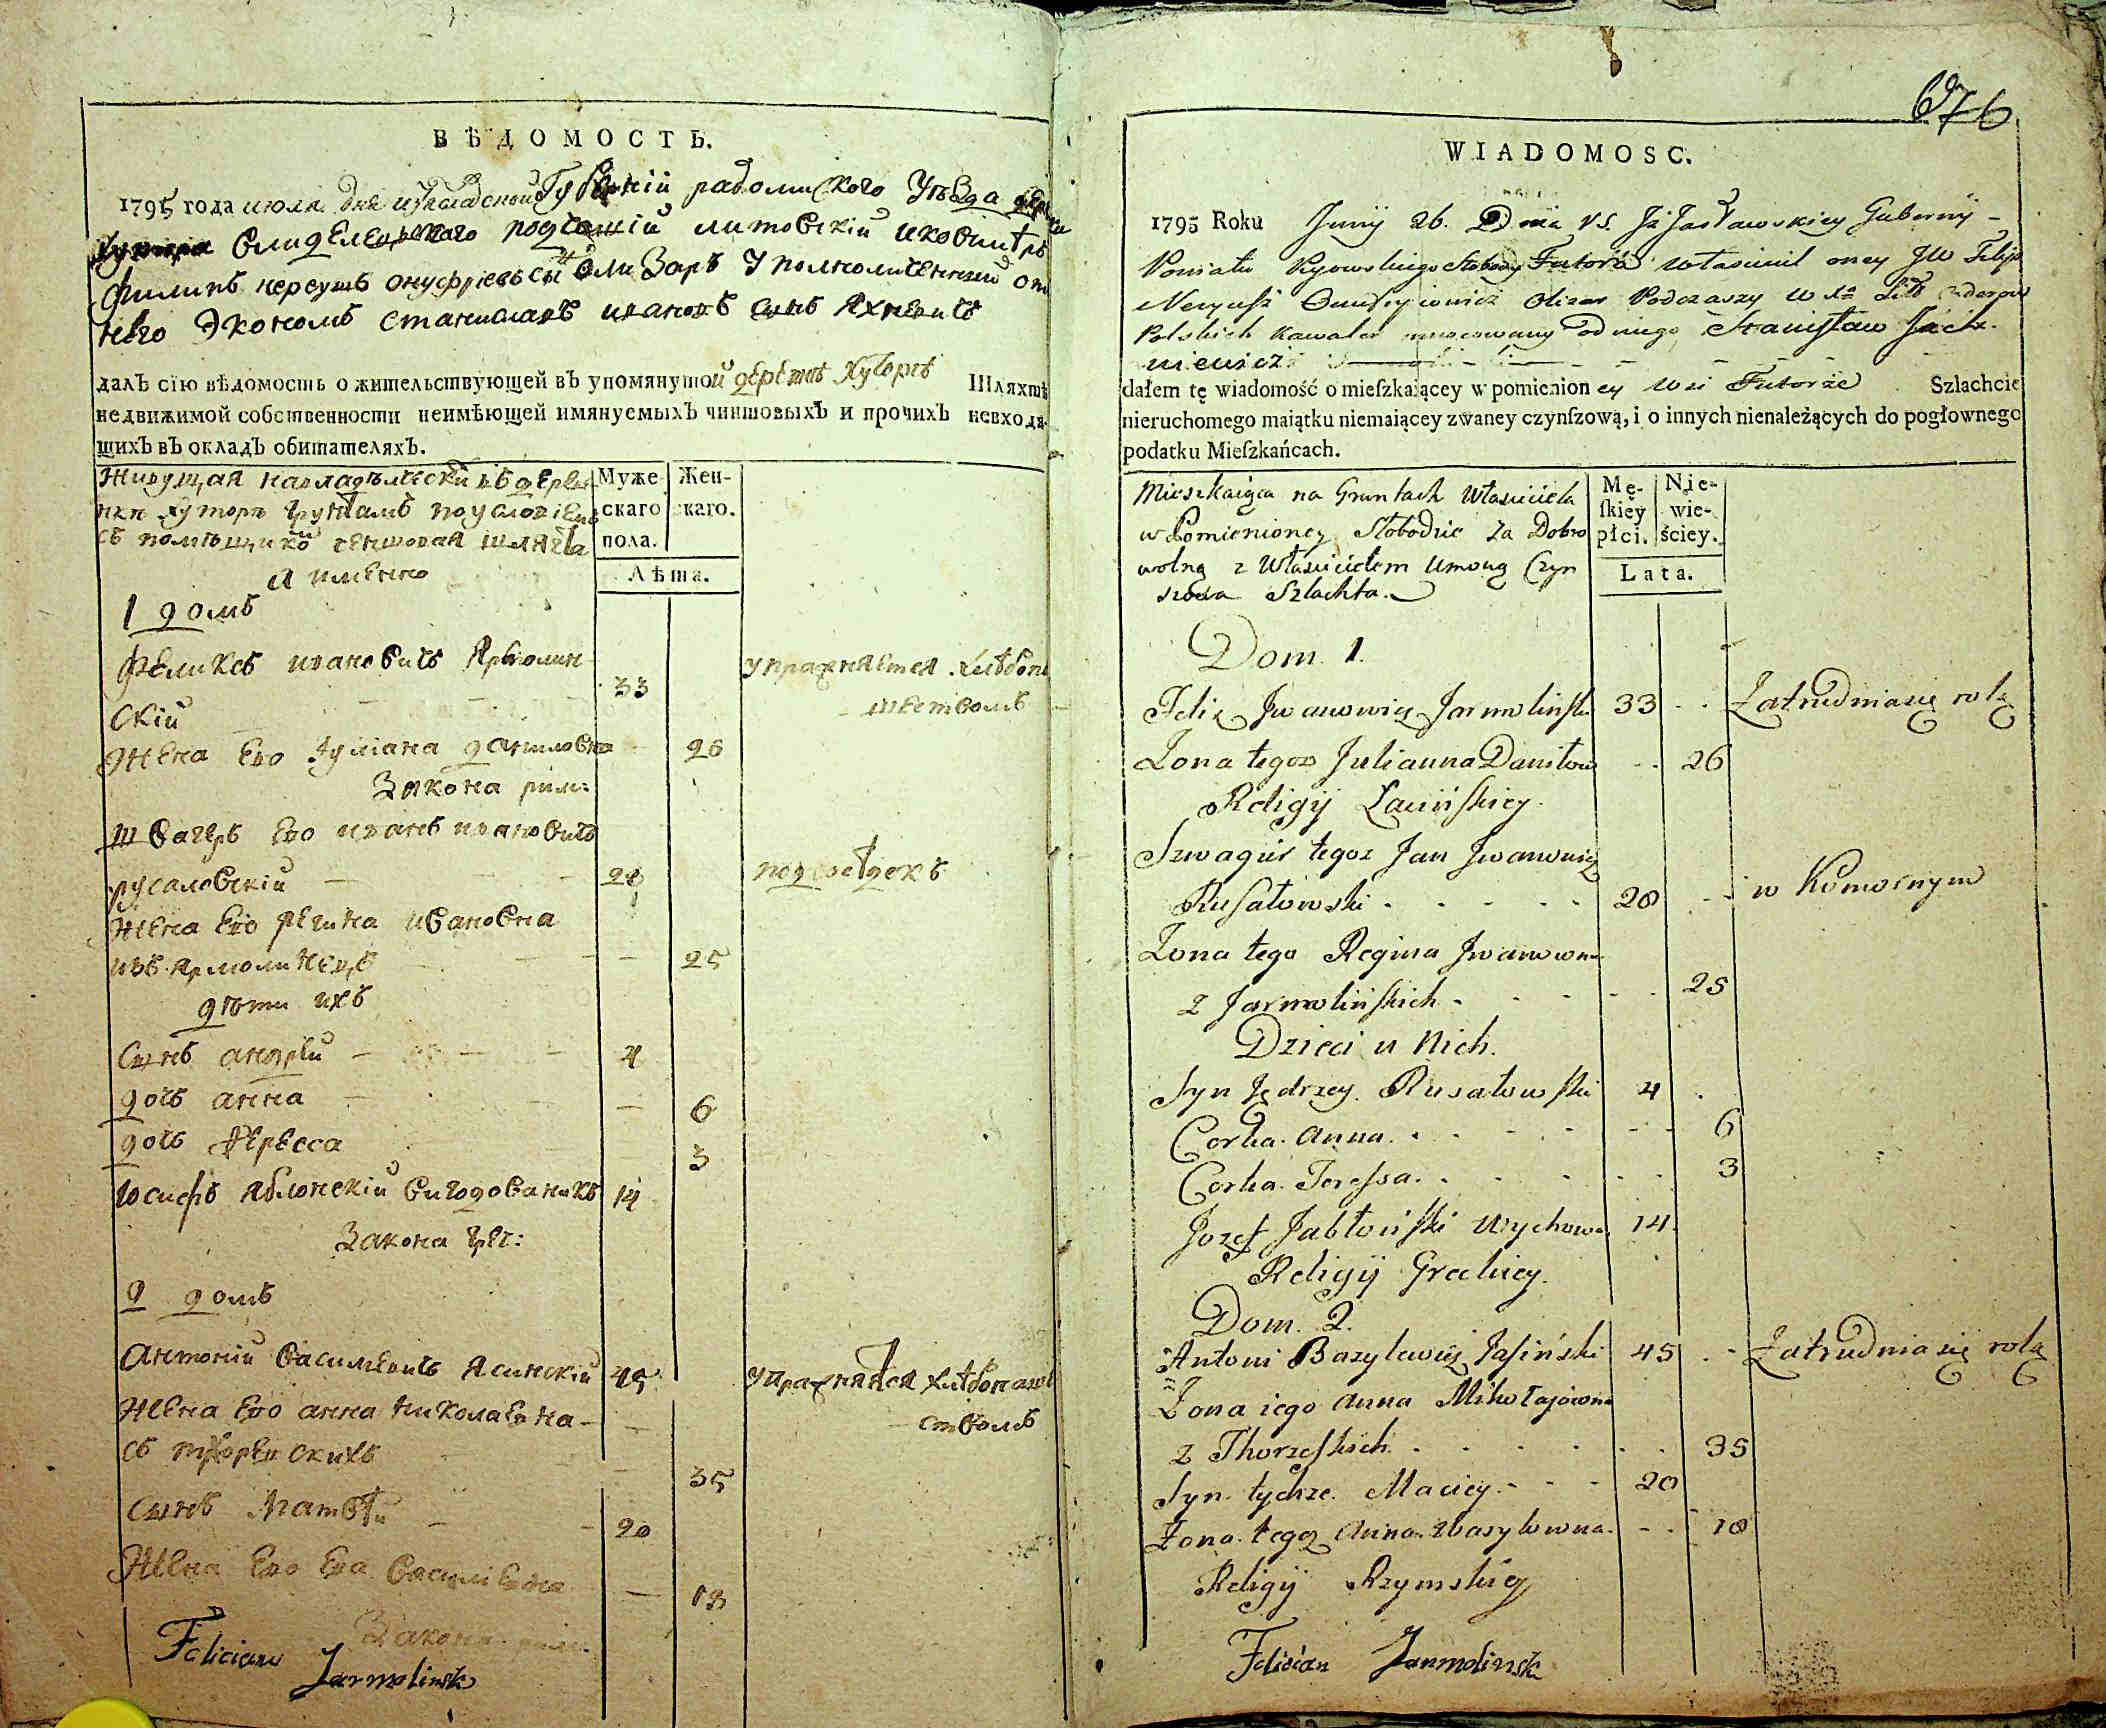 ВѢДОМОСТЬ.
1795 года июля дня Губернїи радомиского Уѣзда
подчашїй литовскїй
филипъ нереушъ онуфрїевъ сынъ Олизаръ Уполномоченный от
него Экономъ станиславъ ивановъ сынъ Яхневичъ
далъ сїю вѣдомость о жительствующей въ упомянутой деревнѣ Хуторѣ Шляхтѣ
недвижимой собственности неимѣющей имянуемыхъ чиншовыхъ и прочихъ невходя-
щихъ въ окладъ обитателяхъ.
Живущая навладѣлческй въ дерев
нѣ хуторѣ грунтамъ поусловїемъ
съ помѣщикомъ чиншовая шляхта
а имѣнно
Муже-
скаго
пола.
Жен-
скаго.
Лѣта.
1 домъ
Феликсъ ивановичъ Ярмолин
скїй 33 упражняется хлѣбопа
шествомъ
Жена Его Іулїана даниловна 26
Закона рим:
швагеръ Его иванъ ивановичъ
русаловскїй 28 подсоседокъ
Жена Его Регина ивановна
изъ Ярмолинецъ 25
дѣти ихъ
Сынъ андрей 4
дочь анна 6
дочь Тересса 3
Іосифъ Яблонскїй вигодованикъ 14
Закона грѣ:
2 домъ
Антонїй Василевичъ Ясинскїй 45 упражняется хлѣбопаше
ствомъ
Жена Его анна николаевна
съ тхоревскихъ 35
Сынъ Матвѣй 20
Жена Его Ева Василїевна 18
Закона рим:
Felician
Jarmolinsk
676
WIADOMOSC.
1795 Roku Junij 26. Dnia VS. Jz Jasławskiey Gubernij
Powiatu Kyowskiego Słobody Futora własciciel oney JW Filip
Neryusz Onufryiowicz Olizar Podczaszy W Xa Litt Orderow
Polskich Kawaler umocowany od niego Stanisław Jach-
niewicz
dałem tę wiadomość o mieſzkaiącey w pomienion ey Wsi Futorze Szlachcie
nieruchomego maiątku niemaiącey zwaney czynſzową, i o innych nienależących do pogłownego
podatku Mieſzkańcach.
Mieszkaiąca na Gruntach Własciciela
w Pomienioney Słobodzie Za Dobro
wolną z Własicielem Umową Czyn
szowa Szlachta.
Mę-
ſkiey
płci.
Nie-
wie-
ściey.
Lata.
Dom. 1.
Felix Jwanowicz Jarmolinſki 33 Zatrudnia się rolą
Zona tegoz Julianna Daniłow 26
Religij Łacinſkiey.
Szwagier tegoz Jan Jwanowicz
Ruſałowski 28 w Komornym
Zona tego Regina Jwanowna
z Jarmolinſkich 25
Dzieci u Nich.
Syn Jędrzey Rusałowſki 4
Corka Anna 6
Corka Tereſsa 3
Jozef Jabłonſki Wychowa 14
Religij Greckiey.
Dom. 2.
Antoni Bazylewicz Jaſiński 45 Zatrudnia się rolą
Zona iego Anna Mikołajowna
z Thorzeſkich 35
Syn tychże Maciey 20
Zona tegoz Anna Bazylowna 18
Religij Rzymskiey
Felician Jarmolinsk